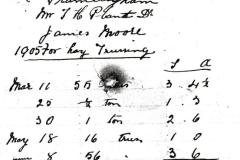 Framlingham
Mr T H Plant Dr
James Moore
1905 for Hay Trussing
s d
Mar 11 55 3 4½
25 ½ ton 1 3
30 1 ton 2 6
May 18 16 truss 1 0
8 56 " 3 6